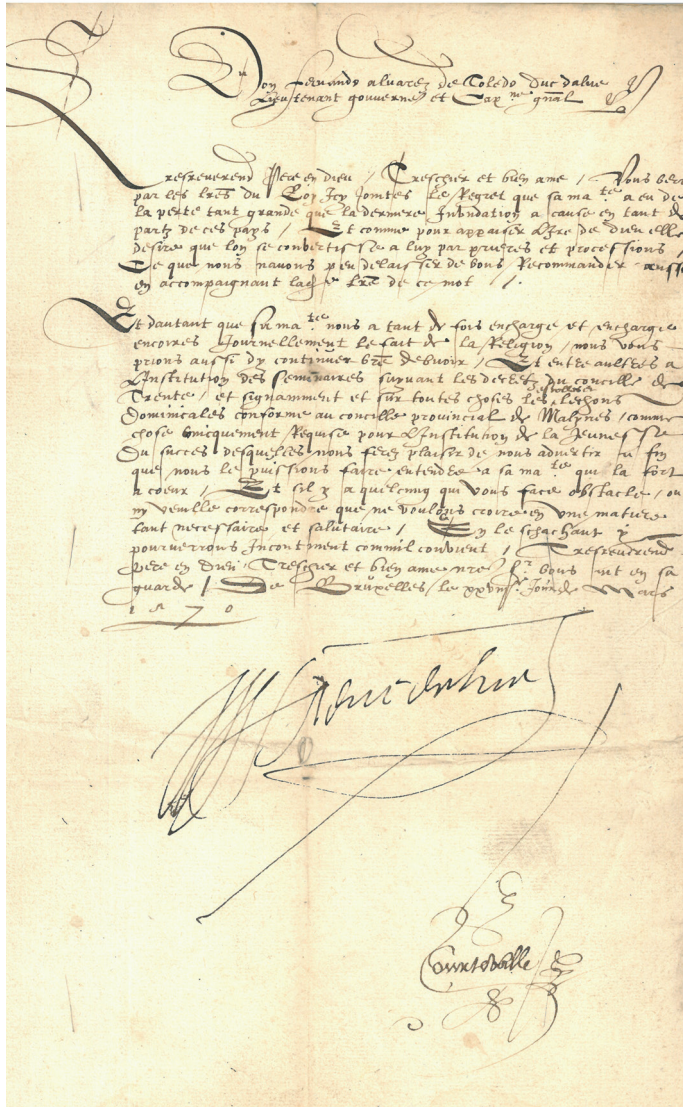 Don Fernando alvarez de Toledo duc dalve
Lieutenant gouverneur et Cap.ne gnal
Tresreverend Pere en dieu / Treschier et bien ame / Vous verr
par les lres du Roy Icy Joinctes le Regret que sa ma.te a eu de
la perte tant grande que la derniere Inundation a cause en tant de
partz de ces pays / Et comme pour appaiser L'ire de dieu elle
desire que lon se convertisse a luy par prieres et processions /
Ce que nous navons peu delaisser de vous Recommander aussi
en accompagnant lad.e lre de ce mot /.
Et dautant que sa ma.te nous a tant de fois encharge et encharge
encoires Journellement le fait de la Religion / nous vous
prions aussi dy continuer vre debvoir / Et entre aultres a
L'Institution des Seminaires suyvant les decretz du concille de
Trente / et signamment et sur toutes choses les escoles
Dominicales conforme au concille provincial de Malines / comme
chose unicquement Requise pour L'Institution de la Jeunesse
Du succes desquelles nous feres plaisir de nous advertir a fin
que nous le puissions faire entendre a sa ma.te qui la fort
a coeur / Et sil y a quelcung qui vous face obstacle / ou
ny veulle correspondre que ne voulons croire en une matiere
tant necessaire et salutaire / En le schachant y
pourverrons Incontinent commil convient / Tresreverend
pere en dieu Treschier et bien ame nre Sr. vous ait en sa
guarde / De Bruxelles / le xxviije Jour de Mars
1570
F A duc dalve
Courteville